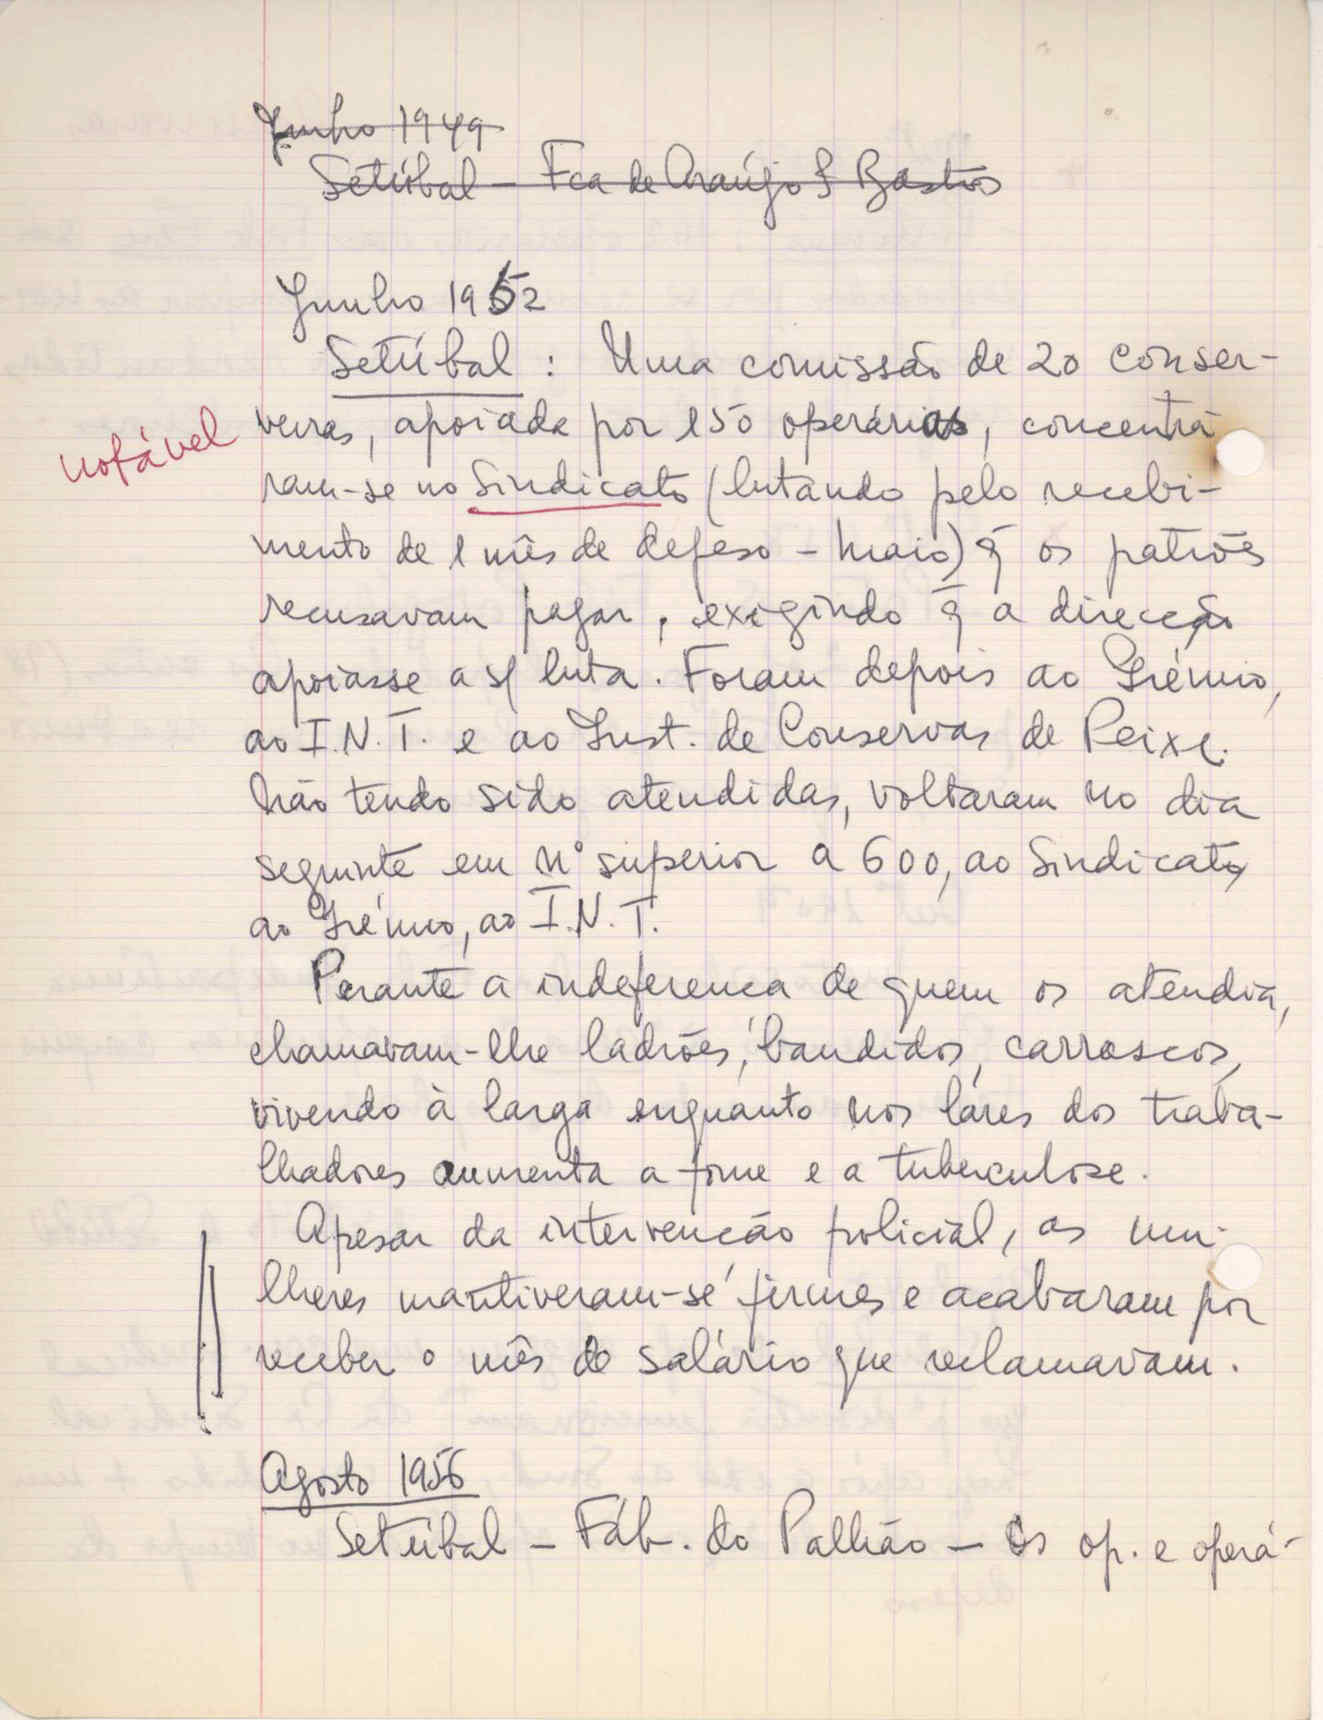 Junho 1949
Setúbal - Fca de Araújo & Bastos
Junho 1952
Setúbal : Uma comissão de 20 conser-
notável
veiras, apoiada por 150 operárias, concentra
ram-se no Sindicato (lutando pelo recebi-
mento de 1 mês de defeso - Maio) q̄ os patrões
recusavam pagar, exigindo q̄ a direcção
apoiasse a s/ luta. Foram depois ao Grémio,
ao I.N.T. e ao Inst. de Conservas de Peixe.
Não tendo sido atendidas, voltaram no dia
seguinte em nº superior a 600, ao Sindicato,
ao Grémio, ao I.N.T.
Perante a indeferenca de quem os atendia,
chamavam-lhe ladrões, bandidos, carrascos,
vivendo à larga enquanto nos láres dos traba-
lhadores aumenta a fome e a tuberculose.
Apesar da intervenção policial, as mu-
lheres mantiveram-se firmes e acabaram por
receber o mês de salário que reclamavam.
Agosto 1956
Setúbal - Fáb. do Palhão - Os op. e operá-